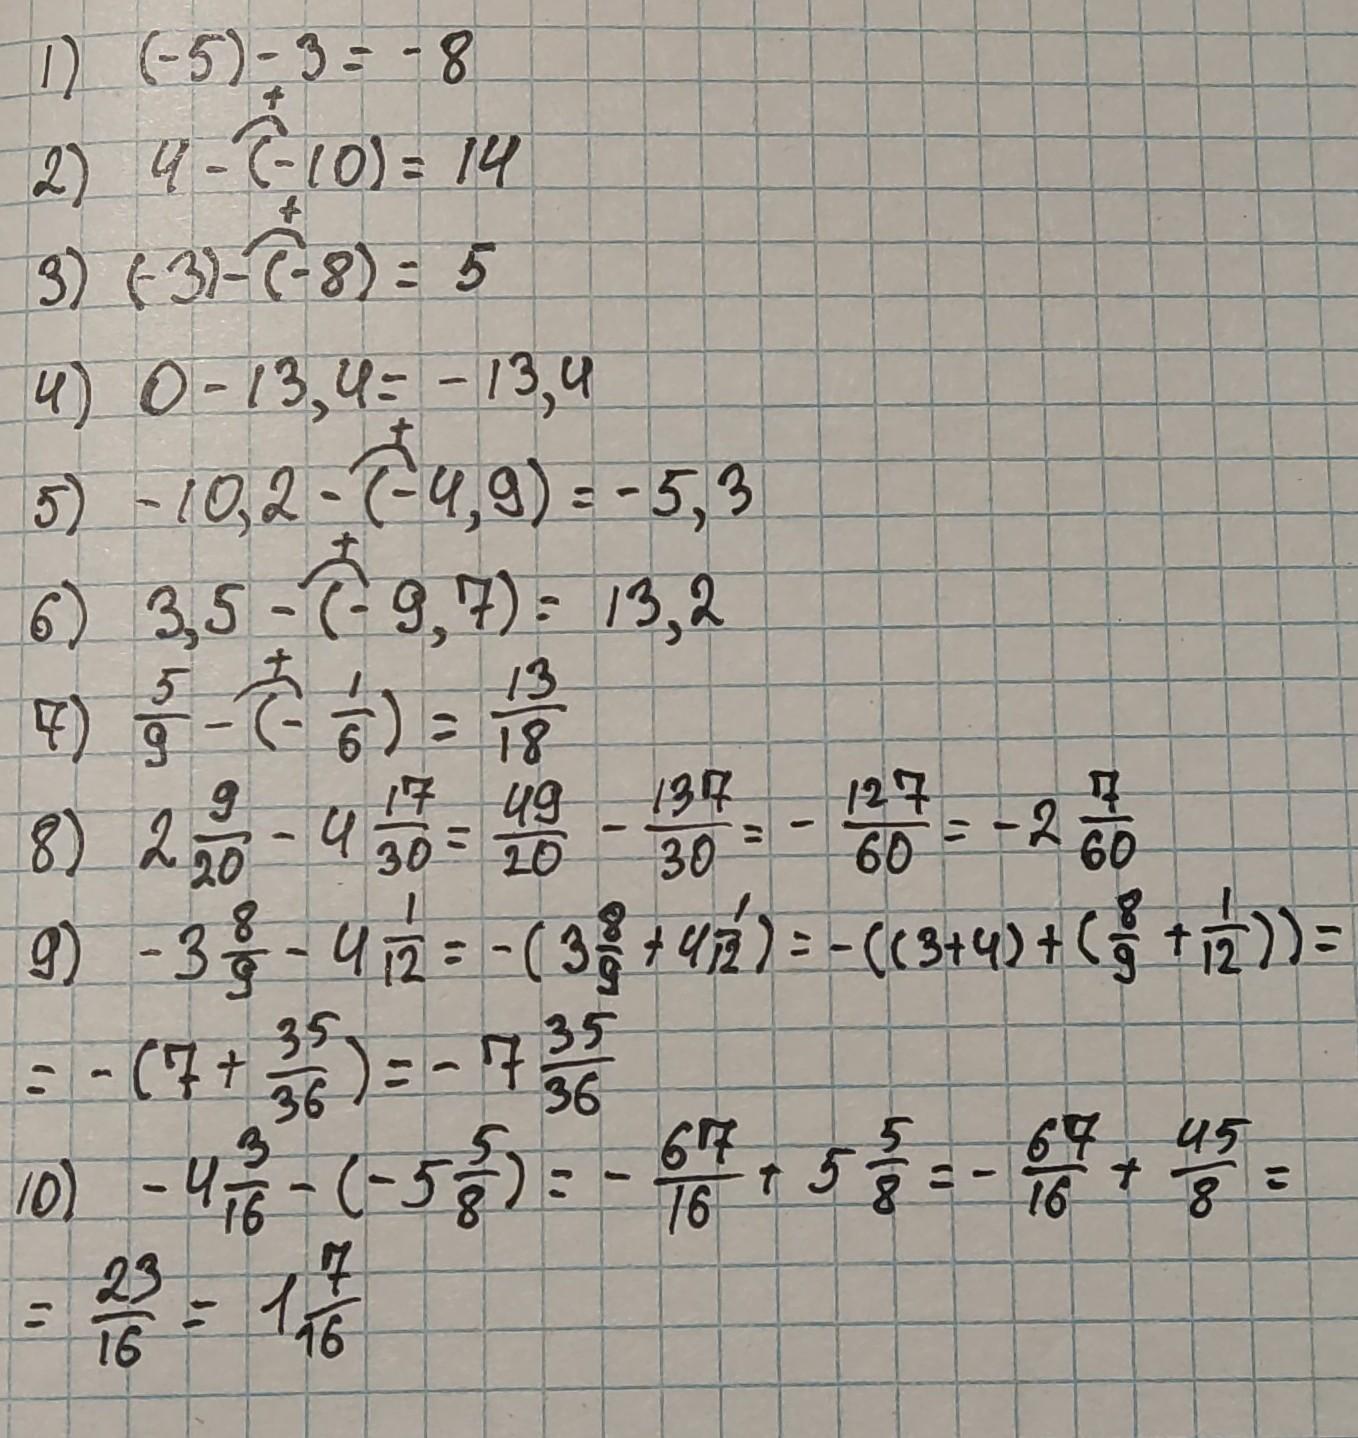 1) (-5)-3 = -8
+
2) 4-(-10) = 14
+
3) (-3)-(-8) = 5
4) 0-13,4 = -13,4
+
5) -10,2-(-4,9) = -5,3
+
6) 3,5-(-9,7) = 13,2
+
7) 5/9 - (-1/6) = 13/18
8) 2 9/20 - 4 17/30 = 49/20 - 137/30 = - 127/60 = -2 7/60
9) -3 8/9 - 4 1/12 = -(3 8/9 + 4 1/12) = -((3+4)+(8/9 + 1/12)) =
= -(7 + 35/36) = -7 35/36
10) -4 3/16 - (-5 5/8) = - 67/16 + 5 5/8 = - 67/16 + 45/8 =
= 23/16 = 1 7/16